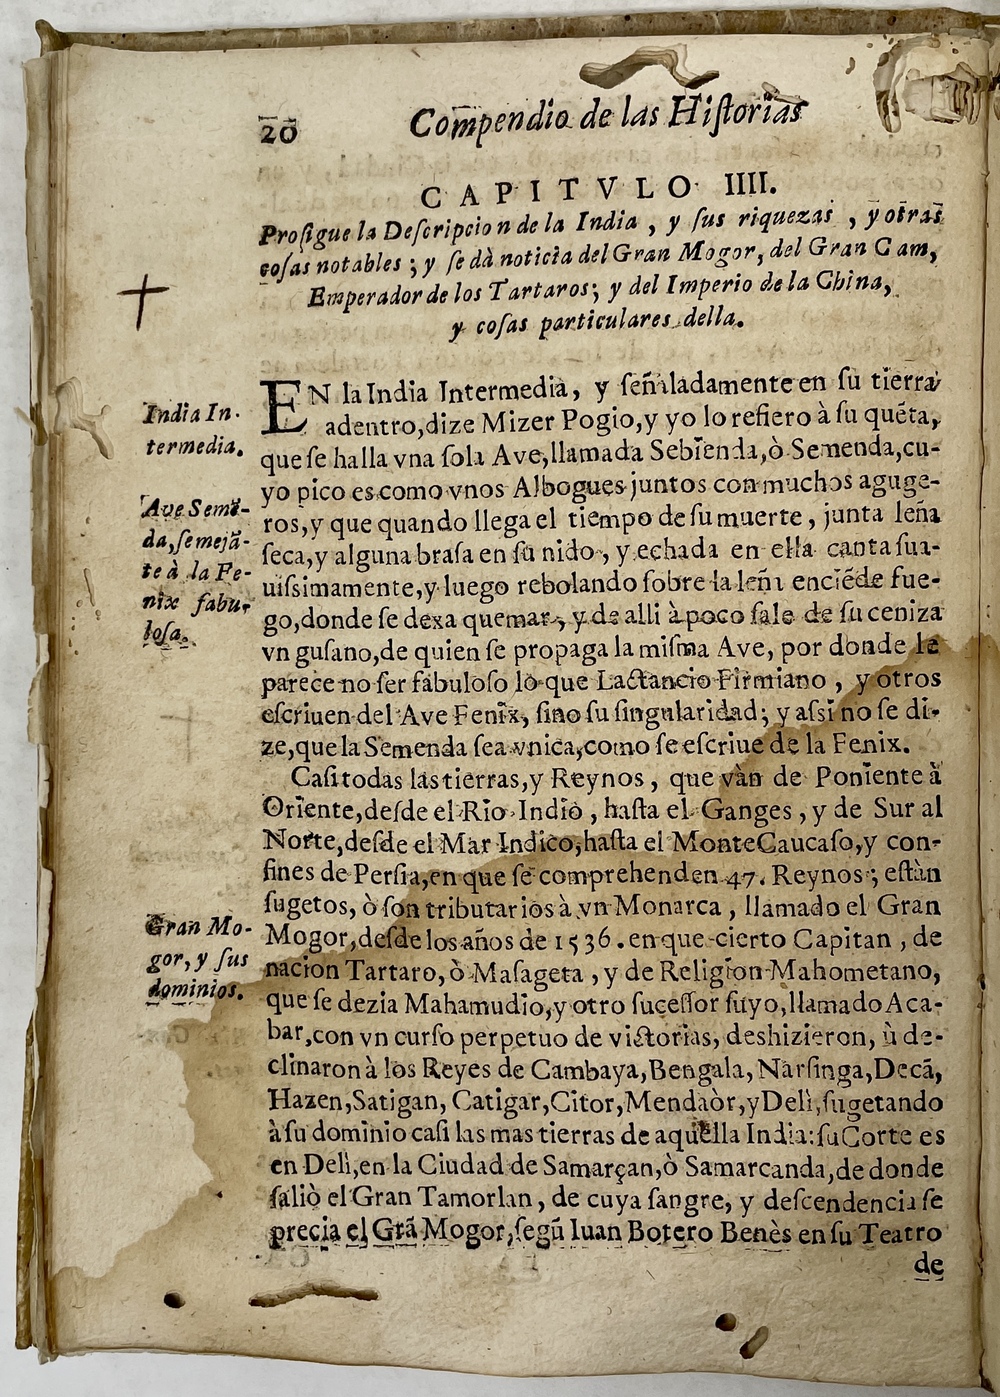 20
Compendio de las Hiſtorias
CAPITVLO IIII.
Proſigue la Deſcripcion de la India, y ſus riquezas, y otras
coſas notables; y ſe dà noticia del Gran Mogor, del Gran Cam,
Emperador de los Tartaros; y del Imperio de la China,
y coſas particulares della.
India In-
termedia.
EN la India Intermedia, y ſeñaladamente en ſu tierra
adentro, dize Mizer Pogio, y yo lo refiero à ſu quẽta,
que ſe halla vna ſola Ave, llamada Sebienda, ò Semenda, cu-
yo pico es como vnos Albogues juntos con muchos aguge-
Ave Semẽ-
da, ſemejã-
te à la Fe-
nix fabu-
loſa.
ros, y que quando llega el tiempo de ſu muerte, junta leña
ſeca, y alguna braſa en ſu nido, y echada en ella canta ſua-
uiſsimamente, y luego rebolando ſobre la leña enciẽde fue-
go, donde ſe dexa quemar, y de alli à poco ſale de ſu ceniza
vn guſano, de quien ſe propaga la miſma Ave, por donde le
parece no ſer fabuloſo lo que Lactancio Firmiano, y otros
eſcriuen del Ave Fenix, ſino ſu ſingularidad; y aſsi no ſe di-
ze, que la Semenda ſea vnica, como ſe eſcriue de la Fenix.
Caſi todas las tierras, y Reynos, que vàn de Poniente à
Oriente, deſde el Rio Indiò, haſta el Ganges, y de Sur al
Norte, deſde el Mar Indico, haſta el Monte Caucaſo, y con-
fines de Perſia, en que ſe comprehenden 47. Reynos; eſtàn
ſugetos, ò ſon tributarios à vn Monarca, llamado el Gran
Gran Mo-
gor, y ſus
dominios.
Mogor, deſde los años de 1536. en que cierto Capitan, de
nacion Tartaro, ò Maſageta, y de Religion Mahometano,
que ſe dezia Mahamudio, y otro ſuceſſor ſuyo, llamado Aca-
bar, con vn curſo perpetuo de victorias, deshizieron, ù de-
clinaron à los Reyes de Cambaya, Bengala, Narſinga, Decã,
Hazen, Satigan, Catigar, Citor, Mendaòr, y Delì, ſugetando
à ſu dominio caſi las mas tierras de aquella India: ſu Corte es
en Delì, en la Ciudad de Samarçan, ò Samarcanda, de donde
ſaliò el Gran Tamorlan, de cuya ſangre, y deſcendencia ſe
precia el Grã Mogor, ſegũ Iuan Botero Benès en ſu Teatro
de